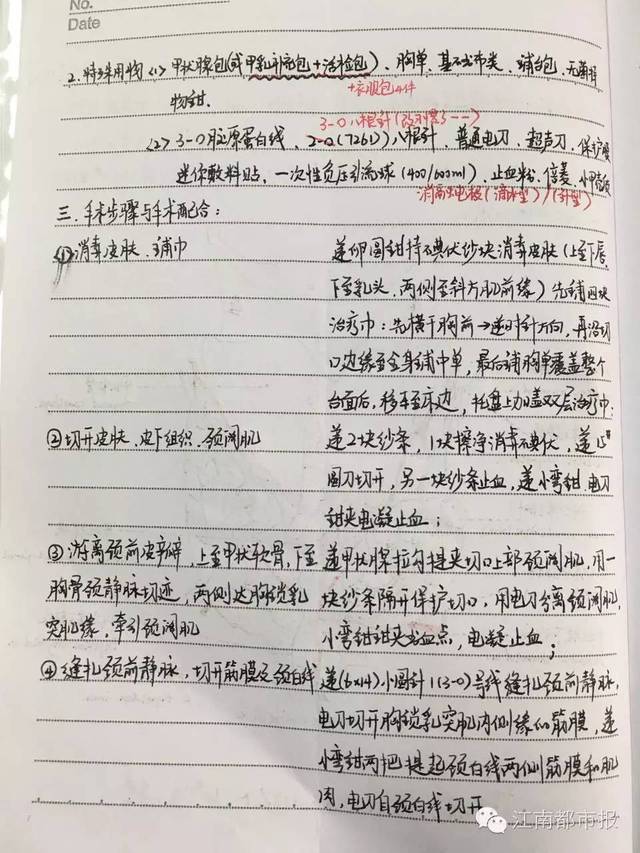 No.
Date
2.特殊用物<1>甲状腺包(或甲乳补充包+活检包)、胸单、基础布类、铺台包、无菌持
+衣服包4件
物钳.
3-0八根针(
<2>3-0胶原蛋白线、2-0(7261)八根针、普通电刀、超声刀、保护膜
迷你敷料贴、一次性负压引流球(400/600ml)、止血粉、倍菱、小甲
消融电极(滴水型)/(针型)
三.手术步骤与手术配合:
①消毒皮肤、铺巾 递卵圆钳持碘伏纱块消毒皮肤(上至下唇,
下至乳头,两侧至斜方肌前缘)先铺四块
治疗巾:先横于胸前→逆时针方向,再沿切
口边缘至全身铺中单,最后铺胸单覆盖整个
台面后,移至床边,托盘上加盖双层治疗巾;
②切开皮肤、皮下组织、颈阔肌 递2块纱条,1块擦净消毒碘伏,递15#
圆刀切开,另一块纱条止血,递小弯钳、电刀
钳夹电凝止血;
③游离颈前皮瓣,上至甲状软骨,下至 递甲状腺拉勾提夹切口上部颈阔肌,用一
胸骨颈静脉切迹,两侧达胸锁乳 块纱条隔开保护切口,用电刀分离颈阔肌,
突肌缘,牵引颈阔肌 小弯钳钳夹出血点,电凝止血;
④缝扎颈前静脉,切开筋膜及颈白线 递(6x14)小圆针1(3-0)号线缝扎颈前静脉,
电刀切开胸锁乳突肌内侧缘的筋膜,递
小弯钳两把提起颈白线两侧筋膜和肌
肉,电刀自颈白线切开
江南都市报